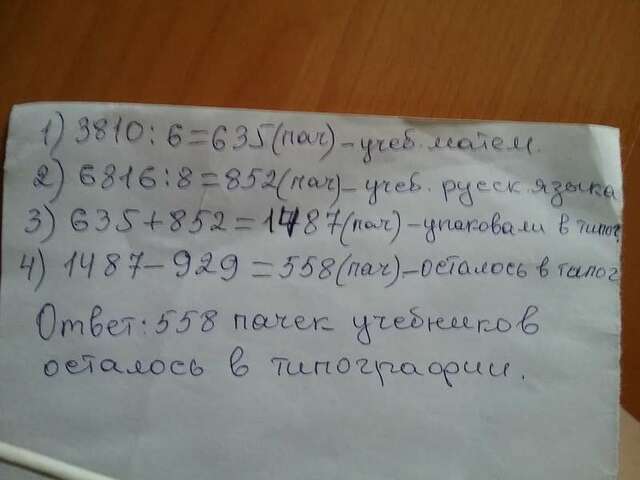 1) 3810:6=635(пач)-учеб.матем.
2) 6816:8=852(пач)-учеб. русск.языка
3) 635+852=1487(пач)-упаковали в типог.
4) 1487-929=558(пач)-осталось в типог
Ответ:558 пачек учебников
осталось в типографии.